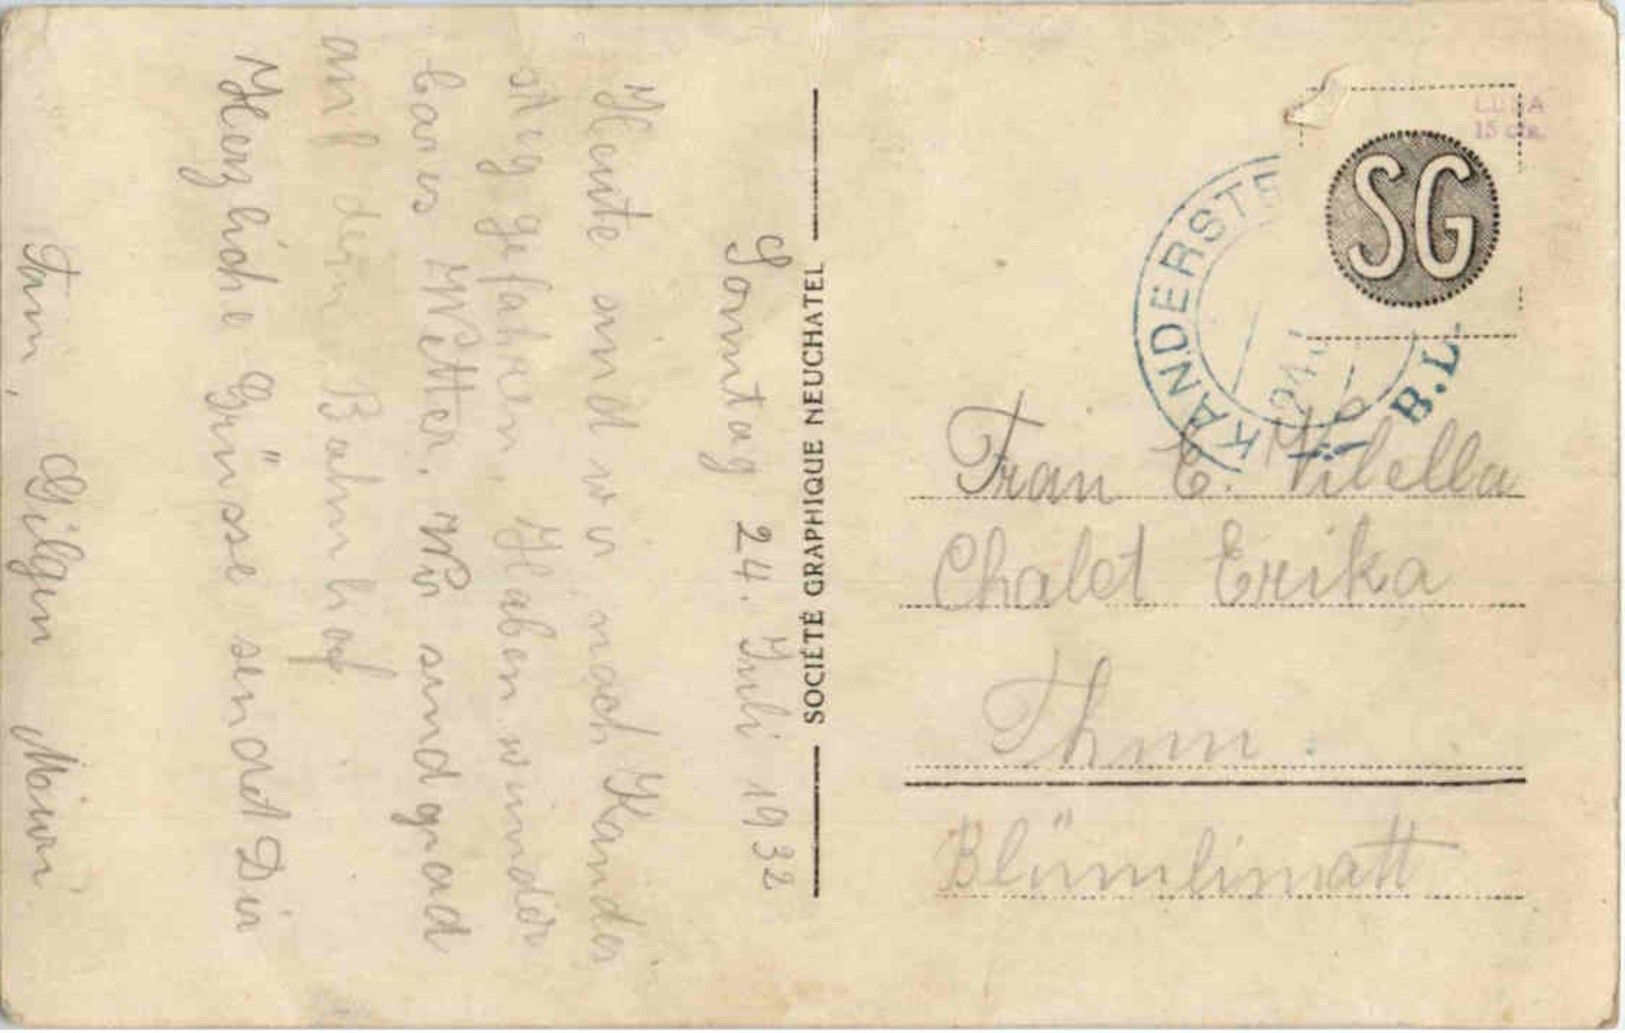 Sonntag 24. Juli 1932
Heute sind wir nach Kander
steg gefahren. Haben wunder
bares Wetter. Wir sind grad
auf dem Bahnhof.
Herzliche Grüsse sendet Dir
SOCIÉTÉ GRAPHIQUE NEUCHATEL
SG
15 cts.
KANDERSTE
B.L.
Frau C. Vilella
Chalet Erika
Thun.
Blümlimatt